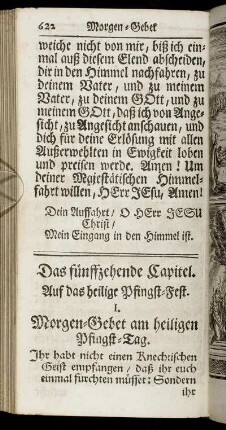 622 Morgen-Gebet
weiche nicht von mir, biß ich ein-
mal auß diesem Elend abscheiden,
dir in den Himmel nachfahren, zu
deinem Vater, und zu meinem
Vater, zu deinem GOtt, und zu
meinem GOtt, daß ich von Ange-
sicht, zu Angesicht anschauen, und
dich für deine Erlösung mit allen
Außerwehlten in Ewigkeit loben
und preisen werde. Amen! Um
deiner Majestätischen Himmel-
fahrt willen, HErr JEsu, Amen!
Dein Auffahrt/ O HErr JESU
Christ/
Mein Eingang in den Himmel ist.
Das fünffzehende Capitel.
Auf das heilige Pfingst-Fest.
I.
Morgen-Gebet am heiligen
Pfingst-Tag.
Ihr habt nicht einen Knechtischen
Geist empfangen/ daß ihr euch
einmal fürchten müsset: Sondern
ihr